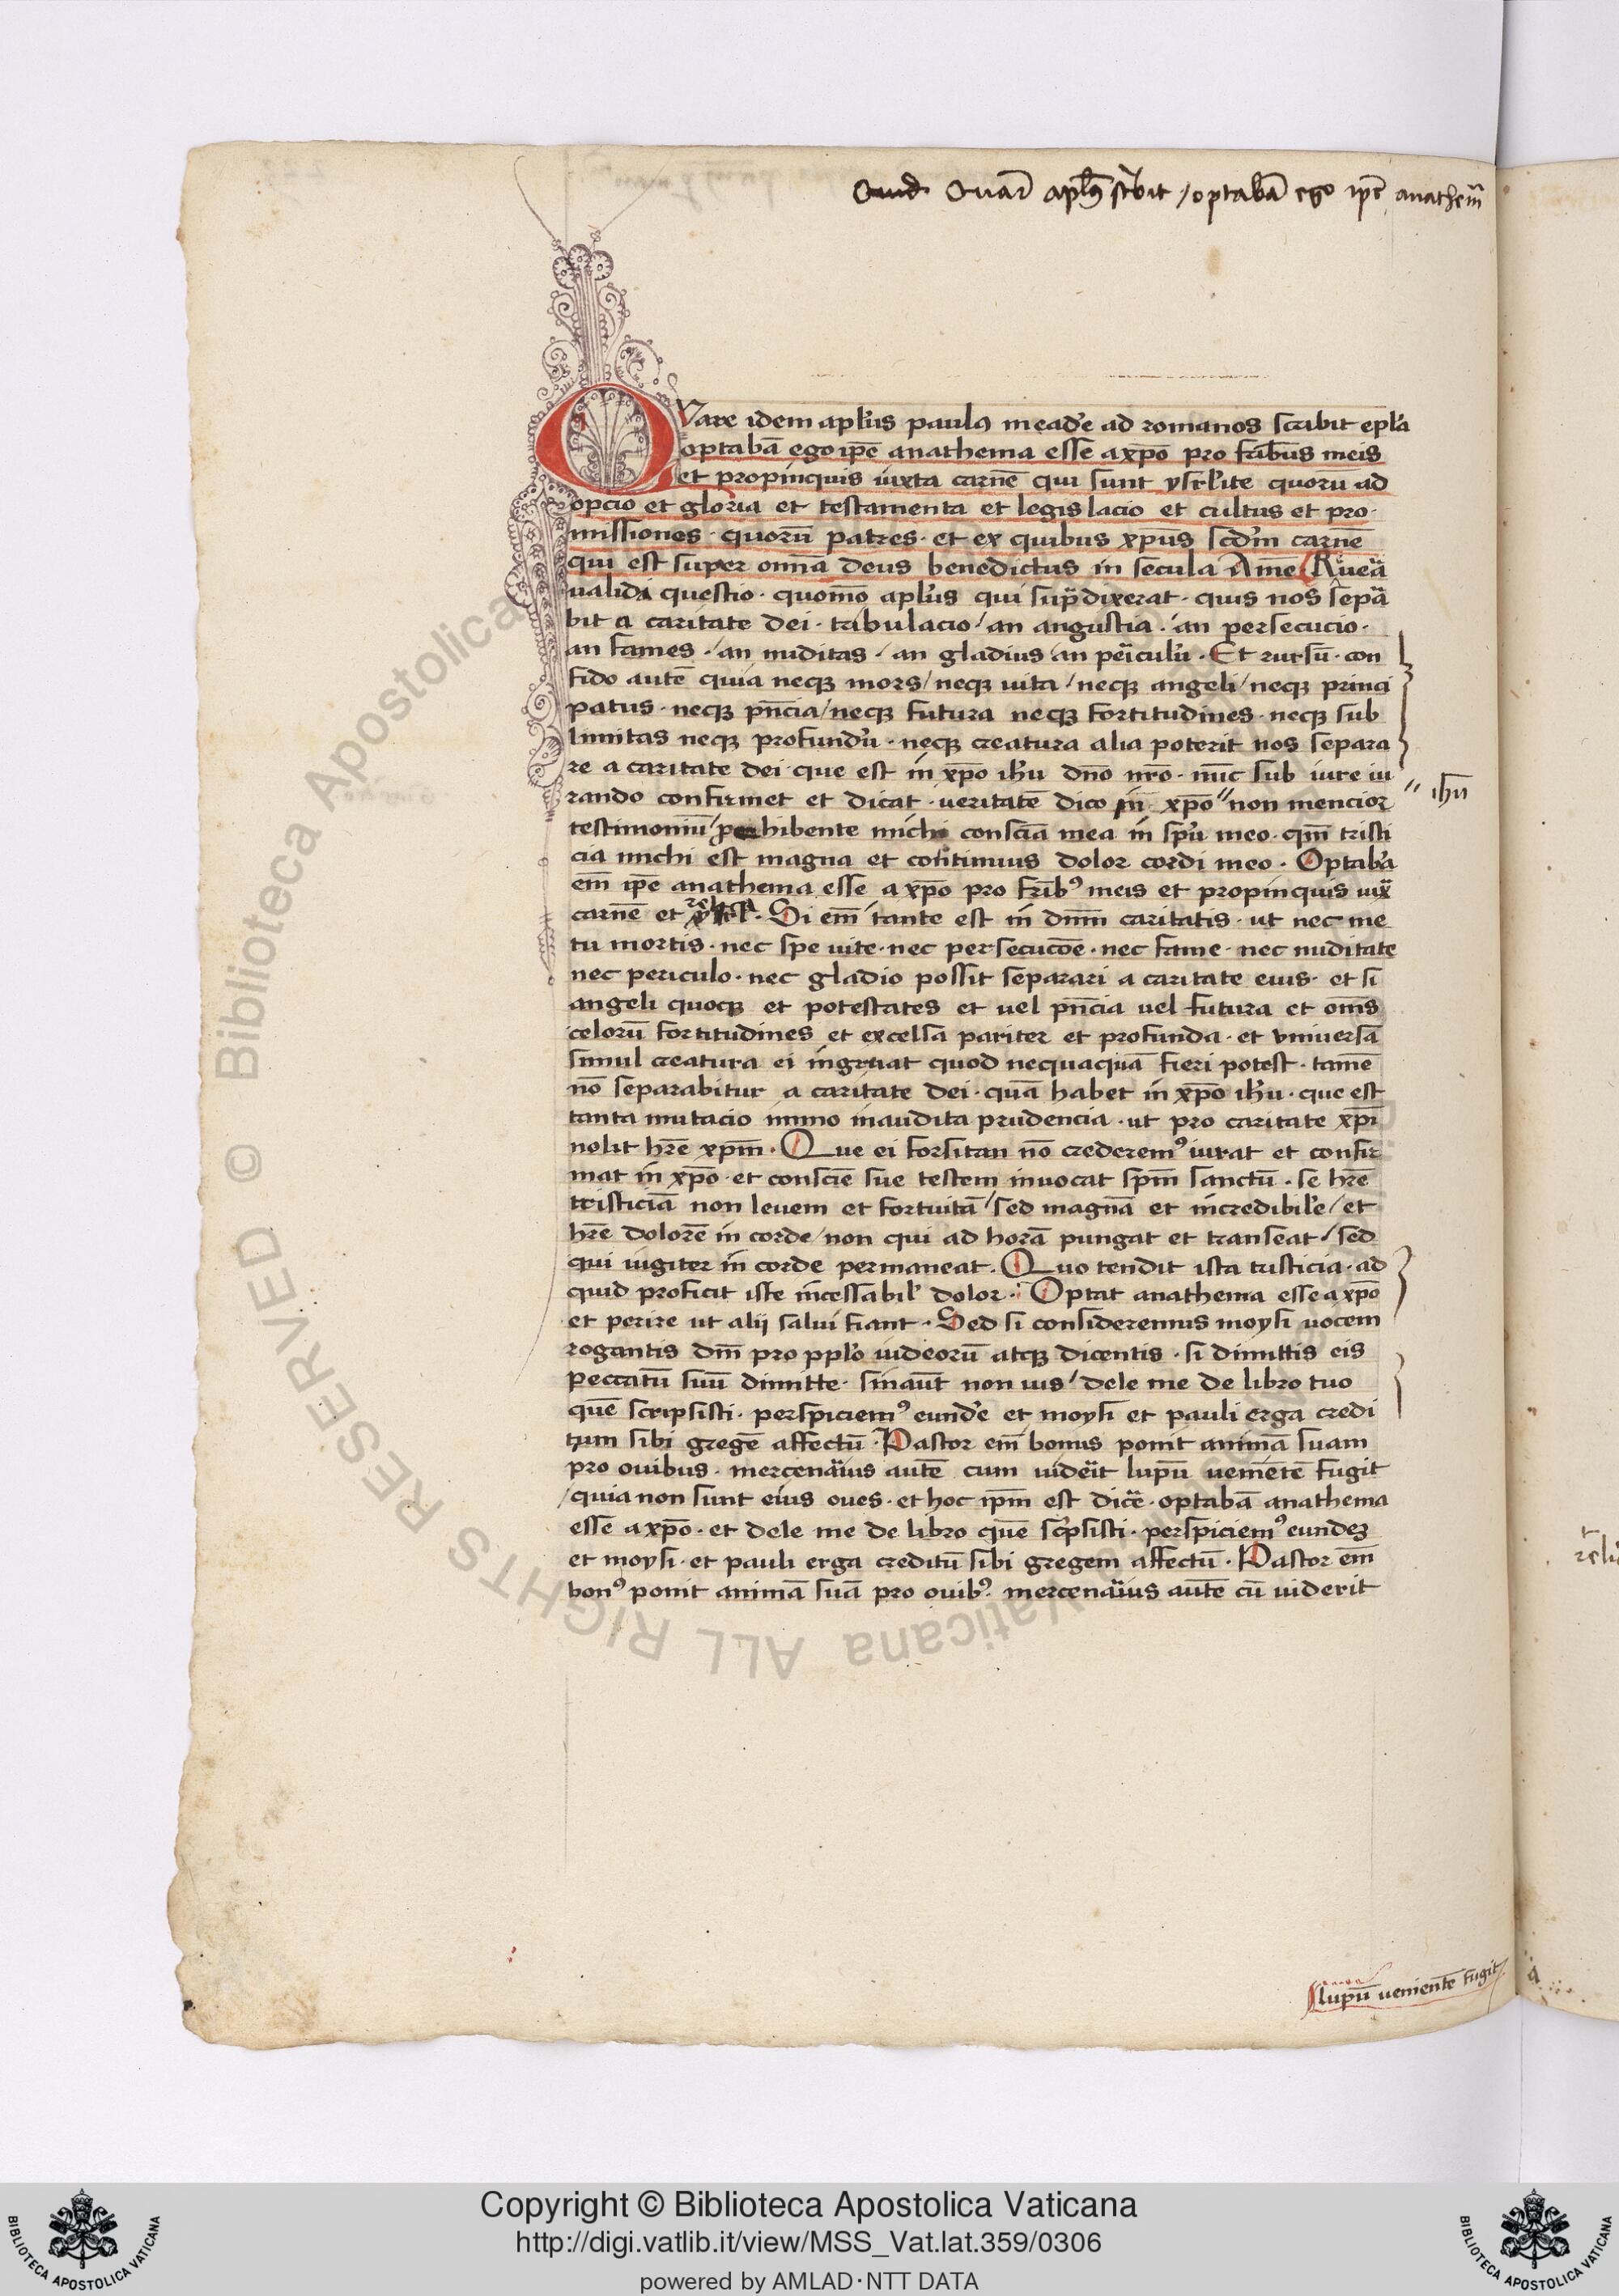 Quid Quarē apl̄s sc̄bit / optabā ego ip̄e anathem̄
QVare idem apl̓us paulꝰ in eadē ad romanos sc̓bit epl̓a
optabā ego ip̄e anathema esse a xp̄o pro fr̄ibus meis
et propinquis iuxta carnē qui sunt ysrl̓ite quorū ad
opcio et gloria et testamenta et legis lacio et cultus et pro
missiones · quorū patres · et ex quibus xp̄us scd̓m carnē
qui est super om̄a deus benedictus in secula Amē Reuēa
valida questio · quom̄o apl̓us qui sup̄dixerat · quis nos sepa
bit a caritate dei · t̓bulacio / an angustia · an persecucio ·
an fames · / an nuditas / an gladius / an pericul̄u · Et rursū · con
fido autē quia neqꝫ mors / neqꝫ uita / neqꝫ angeli / neqꝫ princi
patus · neqꝫ pn̄cia / neqꝫ futura neqꝫ fortitudines · neqꝫ sub
limitas neqꝫ profundū · neqꝫ creatura alia poterit nos separa
re a caritate dei que est in xp̄o ih̄u dn̄o nr̄o · nūc sub iure iu
rando confirmet et dicat · ueritatē dico in xp̄o // non mencior // ih̄u
testimoniū / perhibente michi consciā mea in sp̄u meo · qm̄ tristi
cia michi est magna et continuus dolor cordi meo · Optabā
em̄ ip̄e anathema esse a xp̄o pro fr̄ibꝰ meis et propinquis iux̄
carnē et relicā · Si em̄ tante est in dn̄m caritatis · ut nec me
tu mortis · nec spe uite · nec persecucōe · nec fame · nec nuditate
nec periculo · nec gladio possit separari a caritate eius · et si
angeli quoqꝫ et potestates et uel pn̄cia uel futura et om̄s
celorū fortitudines et excelsa pariter et profunda · et vniversa
simul creatura ei ingruat quod nequaquā fieri potest · tamē
nō separabitur a caritate dei · quā habet in xp̄o ih̄u · que est
tanta mutacio immo inaudita prudencia · ut pro caritate xp̄i
nolit hr̄e xp̄m · Que ei forsitan nō crederemꝰ iurat et confir
mat in xp̄o · et conscīe sue testem inuocat sp̄m sanctū · se hr̄e
tristiciā non leuem et fortuitā / sed magnā et incredibilē / et
hr̄e dolorē in corde / non qui ad horā pungat et transeat / sed
qui iugiter in corde permaneat · Quo tendit ista tristicia · ad
quid proficit iste incessabil̓ dolor · Optat anathema esse a xp̄o
et perire ut alij salui fiant · Sed si consideremus moysi uocem
rogantis dn̄m pro ppl̓o iudeorū atqꝫ dicentis · si dimittis eis
peccatū suū dimitte · sinaut̄ non uis / dele me de libro tuo
quē scripsisti · perspiciemꝰ eundē et moysi et pauli erga credi
tum sibi gregē affectū · Pastor em̄ bonus ponit animā suam
pro ouibus · mercenarius autē cum uiderit lupū uenientē fugit
/ quia non sunt eius oues · et hoc ip̄m est dicē · optabā anathema
esse a xp̄o · et dele me de libro quē sc̓psisti · perspiciemꝰ eundeꝫ
et moysi · et pauli erga creditū sibi gregem affectū · Pastor em̄
bonꝰ ponit animā suā pro ouibꝰ · mercenarius autē cū uiderit
lupū uenientē fugit
© Biblioteca Apostolica Vaticana ALL RIGHTS RESERVED
Copyright © Biblioteca Apostolica Vaticana
http://digi.vatlib.it/view/MSS_Vat.lat.359/0306
powered by AMLAD·NTT DATA
BIBLIOTECA APOSTOLICA VATICANA
BIBLIOTECA APOSTOLICA VATICANA